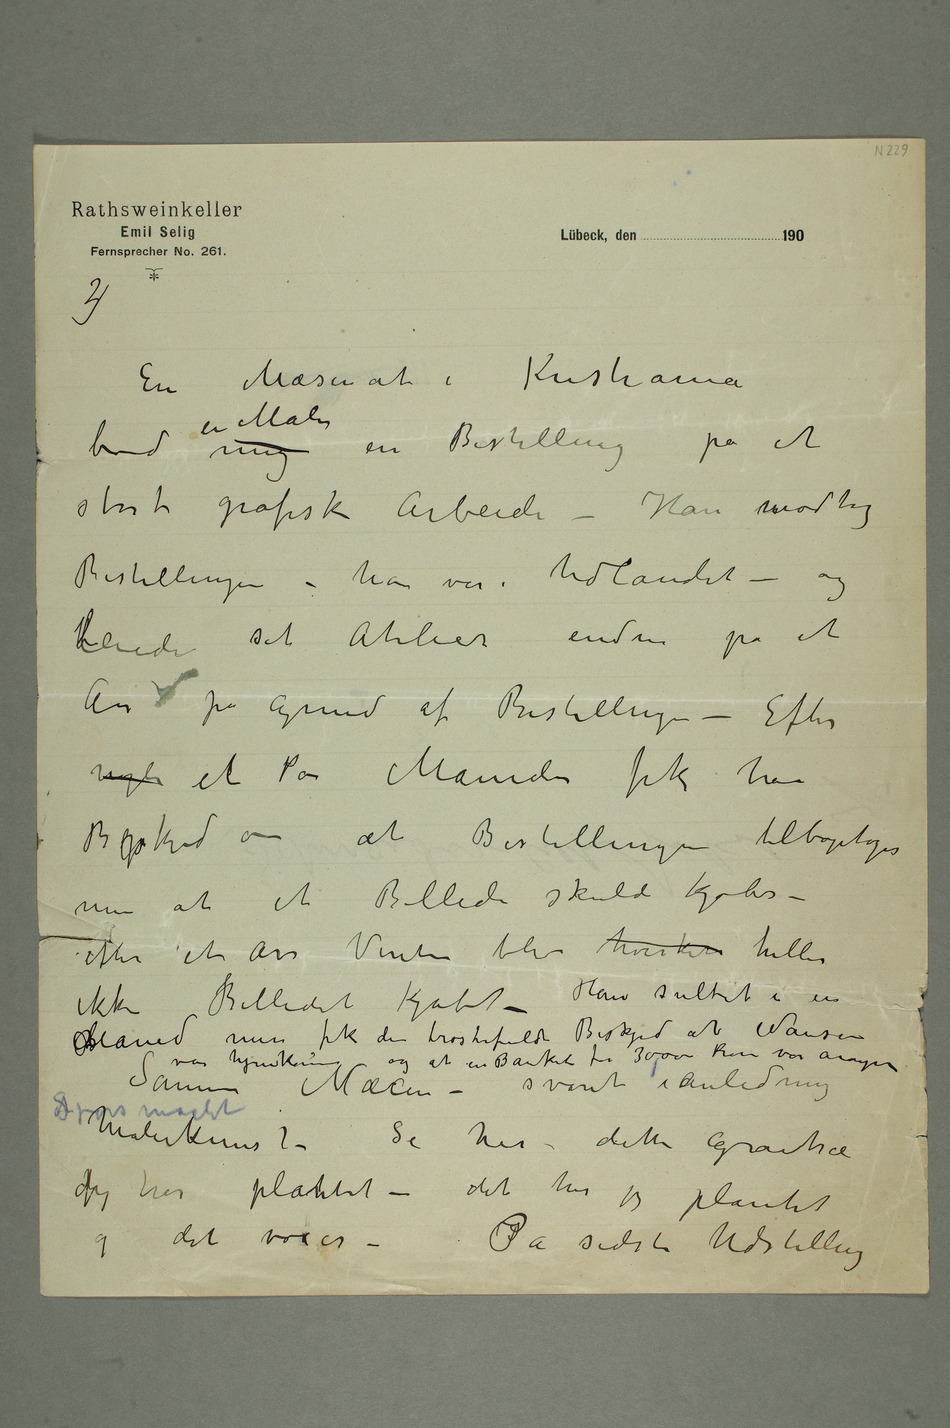 N 229
Rathsweinkeller
Emil Selig
Fernsprecher No. 261.
Lübeck, den 190
En Mæsenat i Kristiania
en Maler
bød mig en Bestilling på et
stort grafisk Arbeide – Han modtog
Bestillingen – han var i Udlandet – og
leiede sit Atelier endnu på et
År på Grund af Bestillingen – Efter
nogle et Par Maneder fik han
Besked om at Bestillingen tilbagetoges
men at et Billede skulde kjøbes –
efter et års Venten blev hverken heller
ikke Billedet kjøbt – Han sultet i en
Maned men fik den trøstefulde Beskjed at Nansen
var hjemkommen og at en Banket for 30,000 Kron var arrangeret
Samme Mæcen – svaret i anledning
Spørsmaalet
Malerkunst – Se her – dette Grantræ
jeg har plantet – det har jeg plantet
og det voxer – På sidste Udstilling